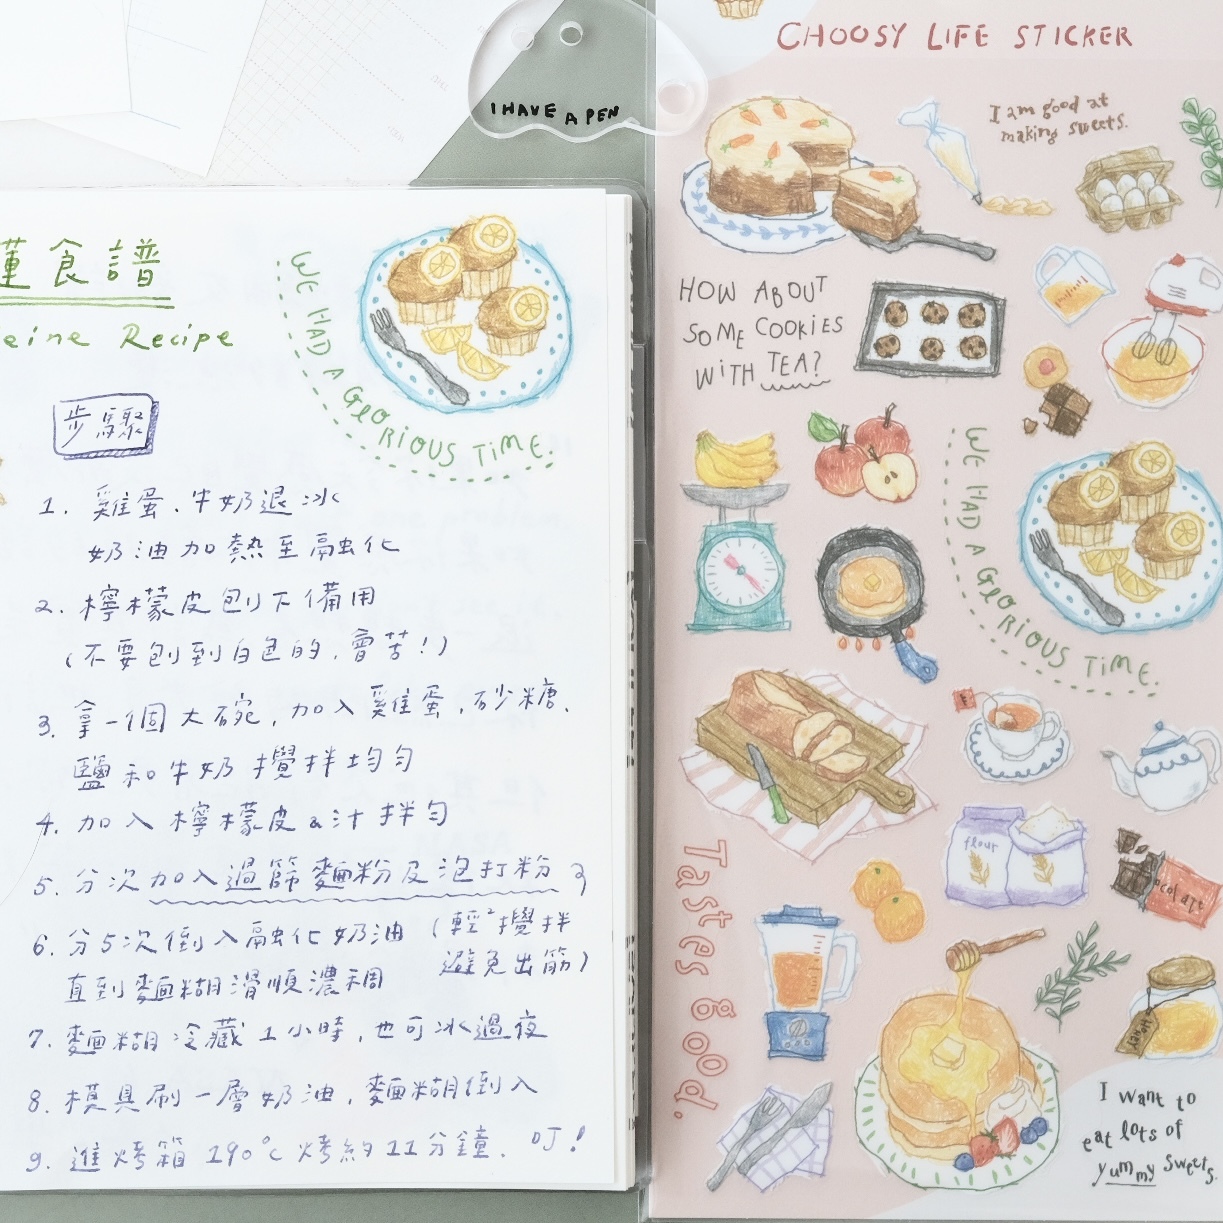 I HAVE A PEN
蓮食譜
eine Recipe
WE HAD A GLORIOUS TIME.
步驟
1. 雞蛋、牛奶退冰
奶油加熱至融化
2. 檸檬皮刨下備用
(不要刨到白色的,會苦!)
3. 拿一個大碗,加入雞蛋,砂糖、
鹽和牛奶攪拌均勻
4. 加入檸檬皮&汁拌勻
5. 分次加入過篩麵粉及泡打粉
6. 分5次倒入融化奶油
直到麵糊滑順濃稠
(輕²攪拌
避免出筋)
7. 麵糊冷藏1小時,也可冰過夜
8. 模具刷一層奶油,麵糊倒入
9. 進烤箱190°C烤約11分鐘. 叮!
CHOOSY LIFE STICKER
I am good at
making sweets.
HOW ABOUT
SOME COOKIES
WITH TEA?
WE HAD A GLORIOUS TIME.
flour
ocolate
Tastes good.
HONEY
I want to
eat lots of
yummy sweets.